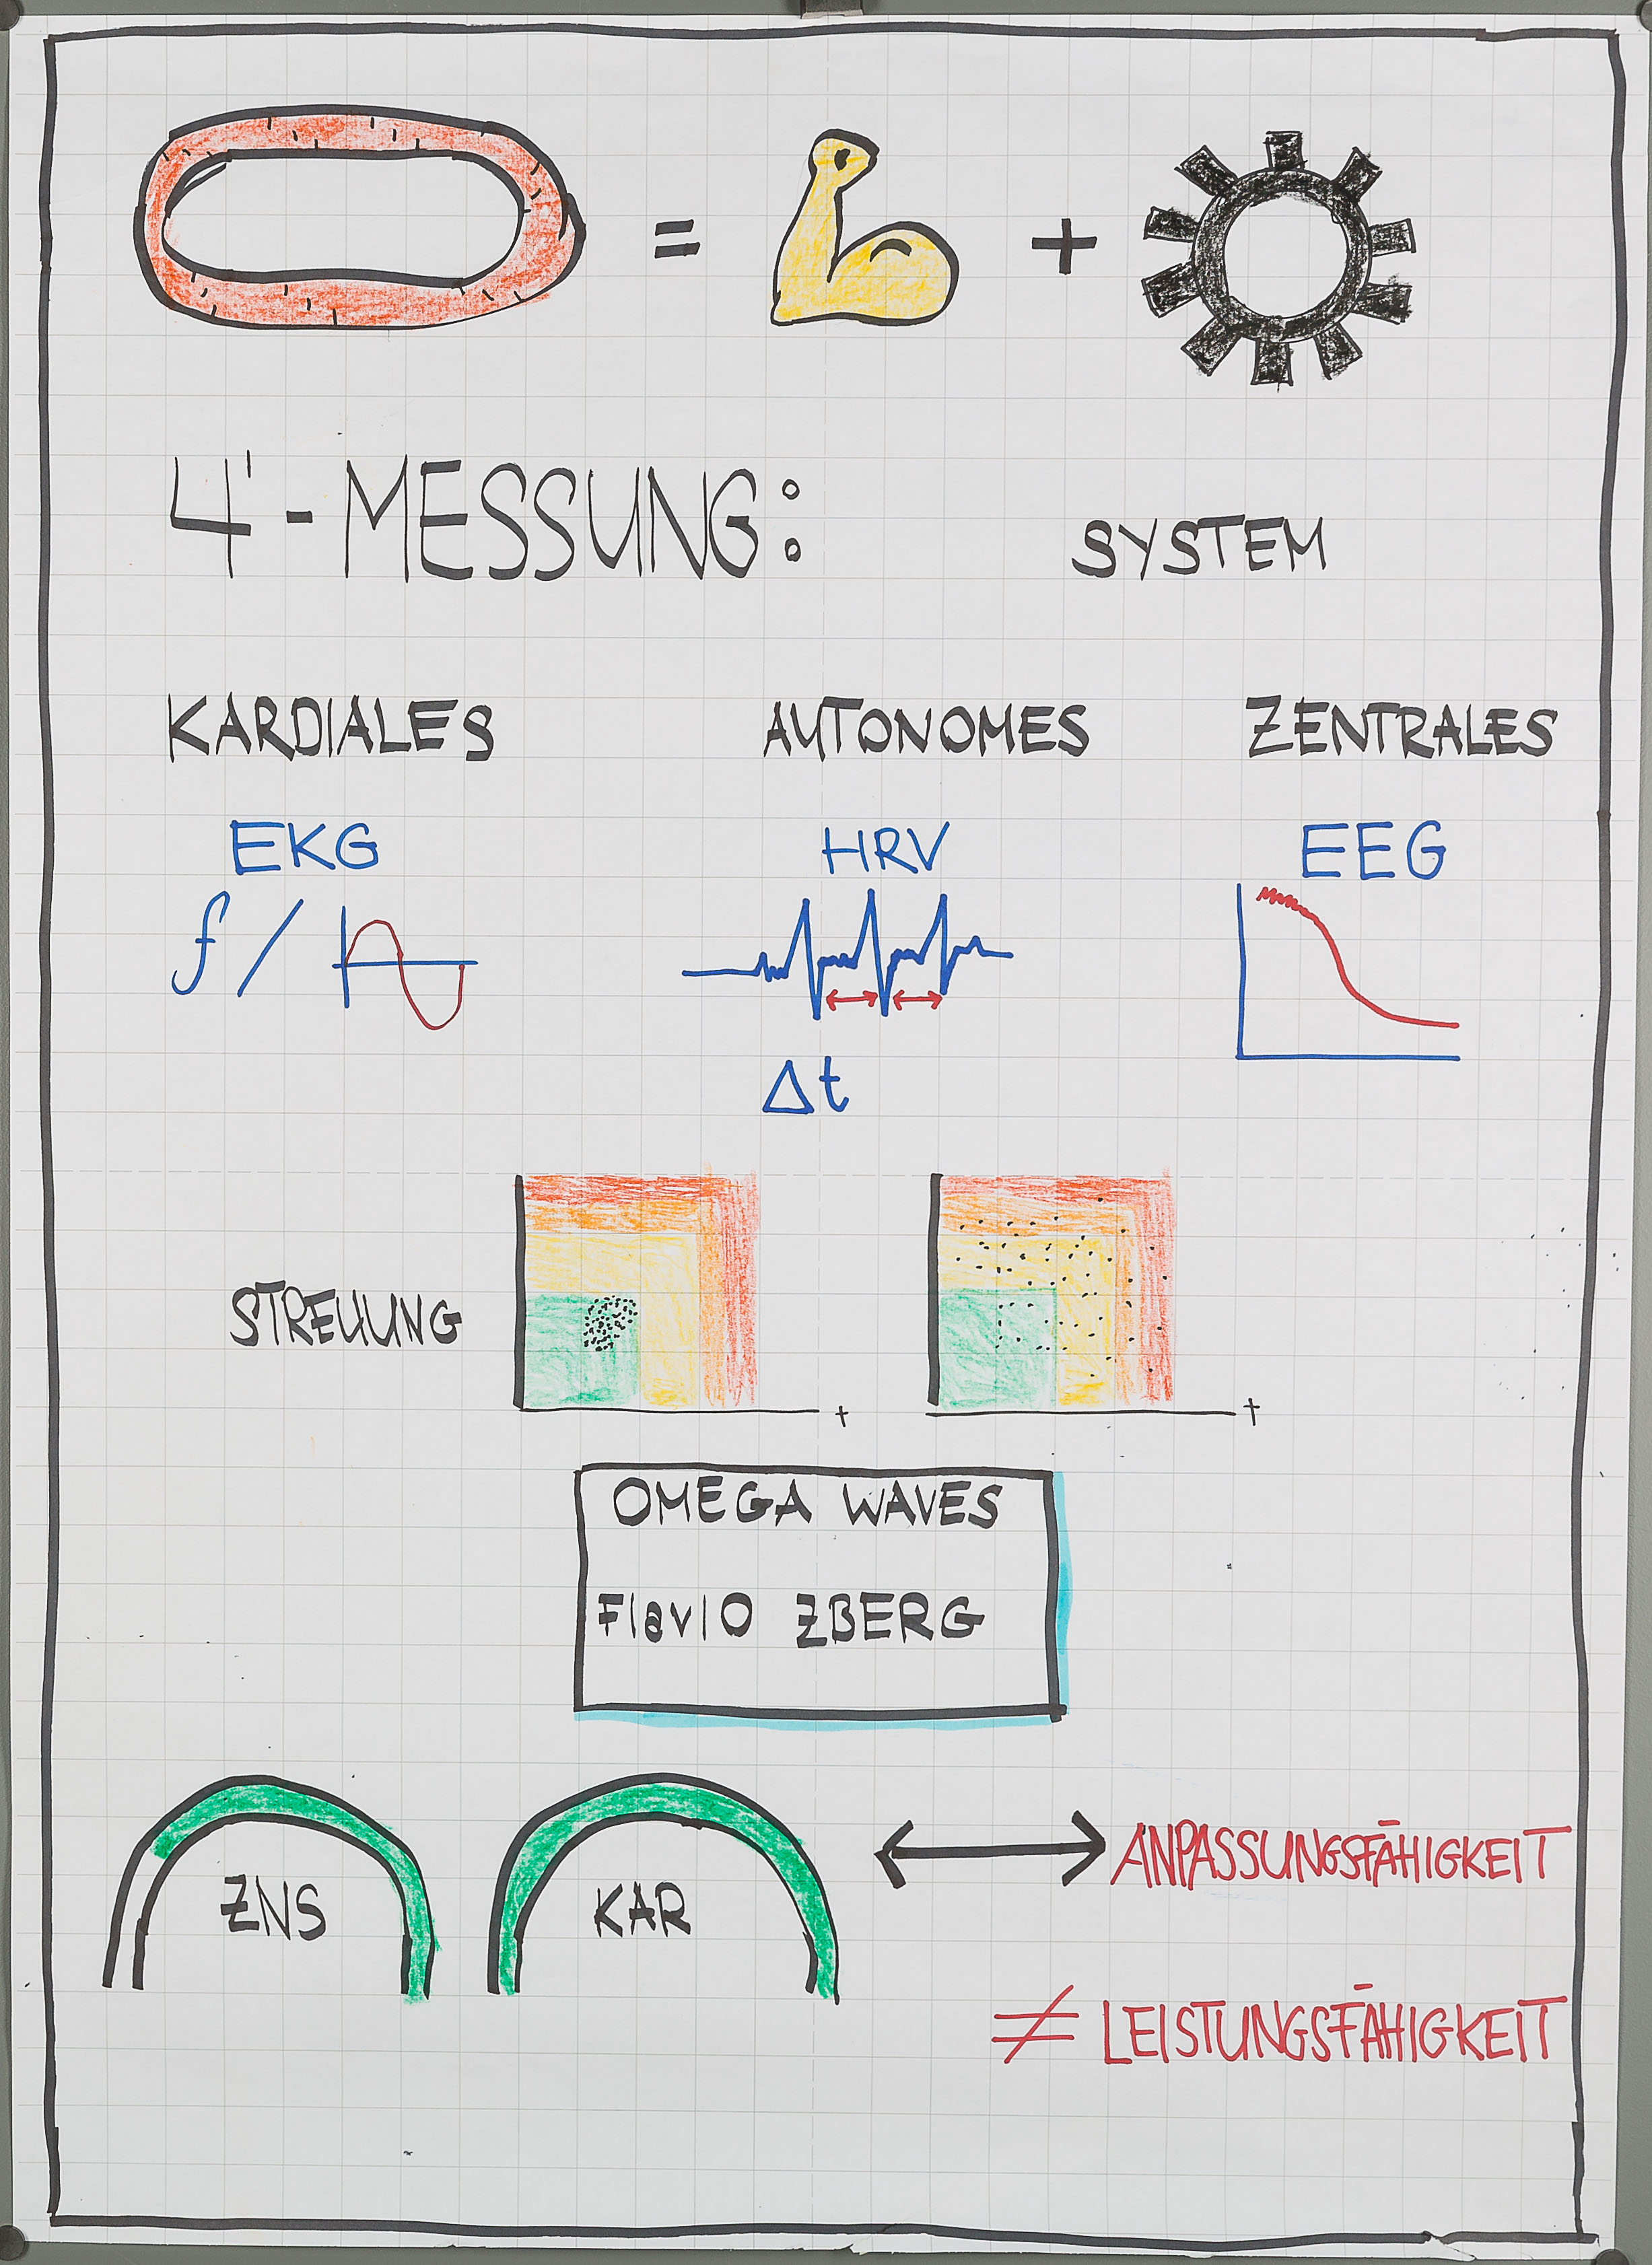 = +
4'-MESSUNG:
SYSTEM
KARDIALES AUTONOMES ZENTRALES
EKG HRV EEG
f /
Δt
STREUUNG
t t
OMEGA WAVES
FlavIO ZBERG
ZNS KAR ANPASSUNGSFÄHIGKEIT
≠ LEISTUNGSFÄHIGKEIT